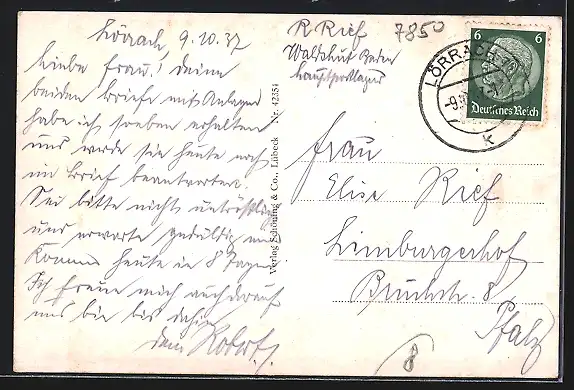 Lörrach, 9.10.37
Liebe Frau! Deine
beiden Briefe mit Anlagen
habe ich soeben erhalten
und werde sie heute noch
im Brief beantworten.
Sei bitte nicht untröstlich
und erwarte geduldig mein
Kommen heute in 8 Tagen.
Ich freue mich auch darauf
und bin bis dahin
dein Robert.
Verlag Schöning & Co., Lübeck Nr. 42354
R Rief
Waldshut Baden
hauptpostlagernd
7850
LÖRRACH
6 6
Deutsches Reich
Frau
Elise Rief
Limburgerhof
Bruchstr. 8
Pfalz
8